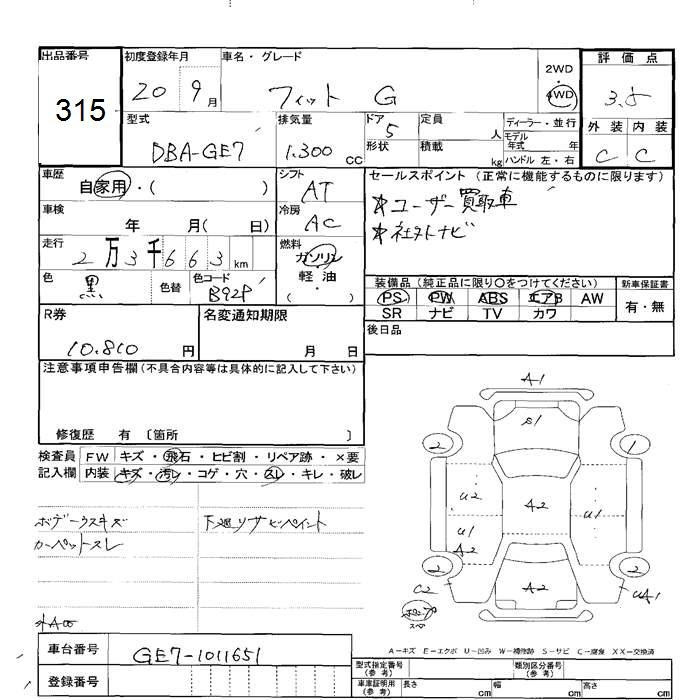 出品番号
初度登録年月
車名・グレード
2WD
4WD
評価点
315
20
9月
フィット G
3.5
型式
排気量
ドア
定員
ディーラー・並行
外装
内装
DBA-GE7
1.300 cc
5
人
モデル年式 年
C
C
形状
積載
kg
ハンドル 左・右
車歴
自家用・( )
シフト
AT
セールスポイント (正常に機能するものに限ります)
☆ユーザー買取車
☆社外ナビ
車検
年 月( 日)
冷房
AC
走行
2万3千663 km
燃料
ガソリン
軽・油
( ・ )
色
黒
色替
色コード
B92P
装備品 (純正品に限り〇をつけてください)
新車保証書
PS PW ABS エアB AW
有・無
SR ナビ TV カワ
R券
10.810 円
名変通知期限
月 日
後日品
注意事項申告欄 (不具合内容等は具体的に記入して下さい)
修復歴 有 〔箇所 〕
検査員
記入欄
FW キズ・飛石・ヒビ割・リペア跡・×要
内装 キズ・汚レ・コゲ・穴・スレ・キレ・破レ
ボデーウスキズ
下廻リサビペイント
カーペットスレ
A1
S1
2
2
U2
A2
U1
A2
U1
2
2
A2
C2
UA1
スペ
A-キズ E-エクボ U-凹み W-補修跡 S-サビ C-腐食 XX-交換済
車台番号
GE7-1011651
登録番号
型式指定番号
(参考)
類別区分番号
(参考)
車庫証明用
(参考)
長さ cm
幅 cm
高さ cm